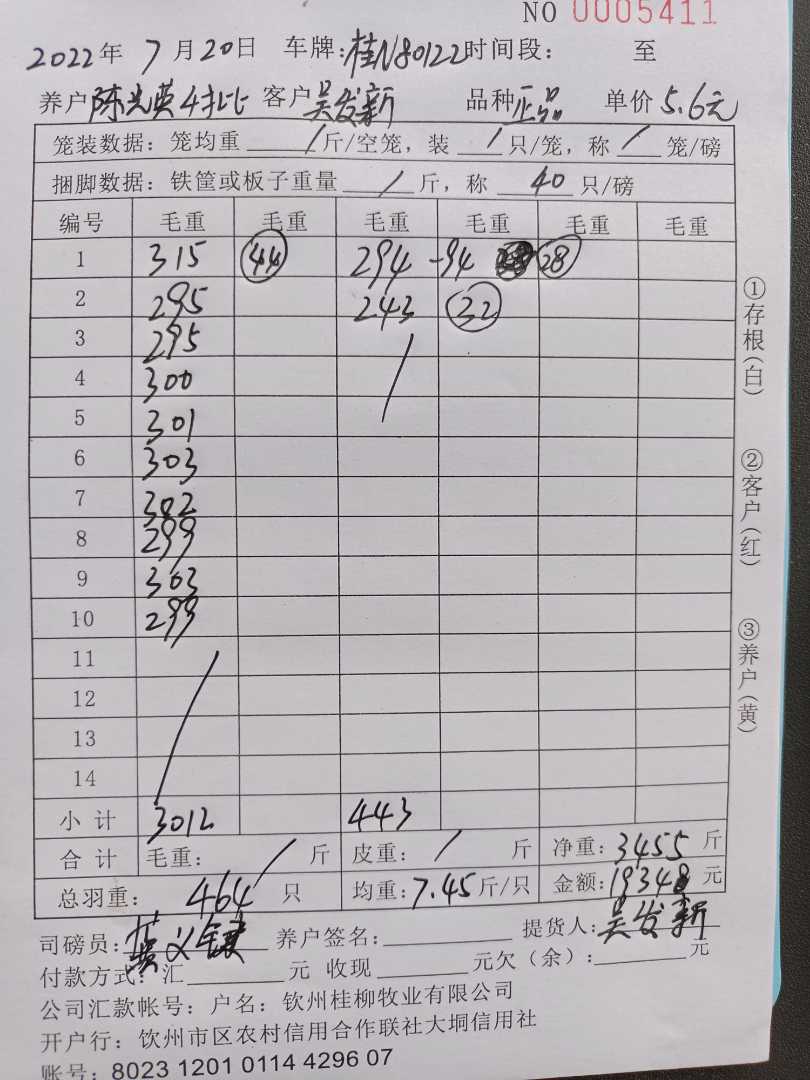 NO 0005411
2022年 7月20日 车牌:桂N80122 时间段: 至
养户 陈光英4批 客户 吴发新 品种 正品 单价 5.6元
笼装数据: 笼均重 / 斤/空笼, 装 / 只/笼, 称 / 笼/磅
捆脚数据: 铁筐或板子重量 / 斤, 称 40 只/磅
编号 毛重 毛重 毛重 毛重 毛重 毛重
1 315 44 294 -94 28
2 295 243 32
3 295
4 300
5 301
6 303
7 302
8 299
9 303
10 299
11
12
13
14
小计 3012 443
合计 毛重: / 斤 皮重: / 斤 净重: 3455 斤
总羽重: 464 只 均重: 7.45 斤/只 金额: 19348 元
司磅员: 义键 养户签名: 提货人: 吴发新
付款方式: 汇 元 收现 元欠(余): 元
公司汇款帐号: 户名: 钦州桂柳牧业有限公司
开户行: 钦州市区农村信用合作联社大垌信用社
账号: 8023 1201 0114 4296 07
①存根(白)
②客户(红)
③养户(黄)